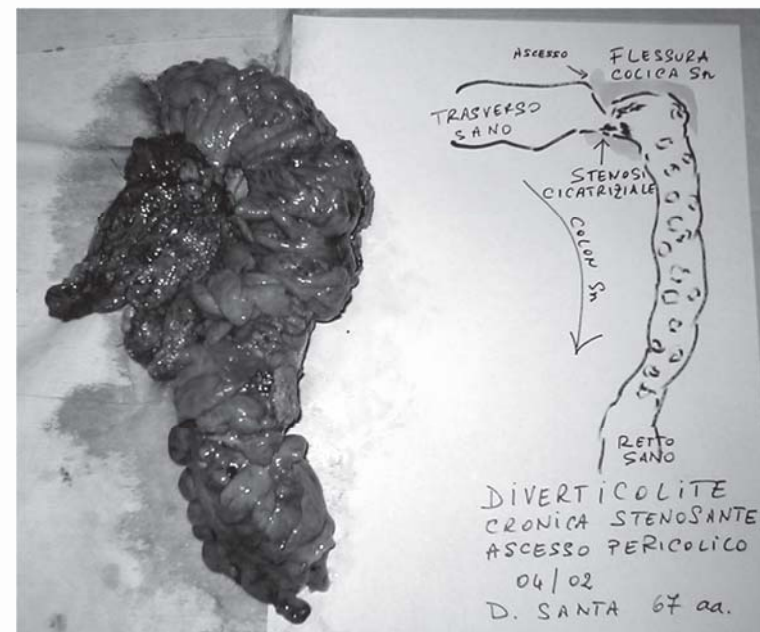 ASCESSO
FLESSURA
COLICA Sn
TRASVERSO
SANO
STENOSI
CICATRIZIALE
COLON Sn
RETTO
SANO
DIVERTICOLITE
CRONICA STENOSANTE
ASCESSO PERICOLICO
04/02
D. SANTA 67 aa.